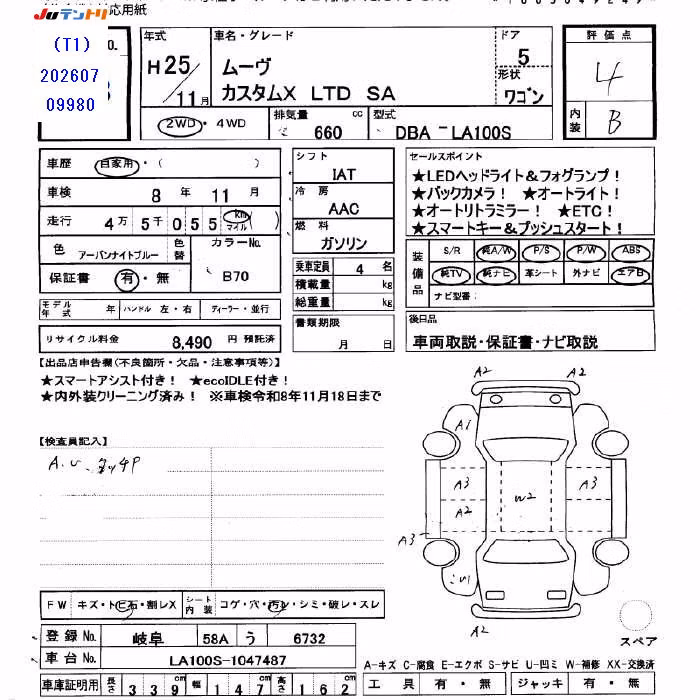 Juテントリ 対応用紙
(T1)
202607
09980
No.
年式
H25/11月
車名・グレード
ムーヴ
カスタムX LTD SA
ドア
5
形状
ワゴン
評価点
4
内装
B
2WD・4WD
排気量
660 cc
型式
DBA－LA100S
車歴 自家用・( )
車検 8年 11月
走行 4万5千055 km マイル ( )
色 アーバンナイトブルー 色替 カラーNo.
B70
保証書 有・無
シフト
IAT
冷房
AAC
燃料
ガソリン
乗車定員 4 名
積載量 kg
総重量 kg
セールスポイント
★LEDヘッドライト&フォグランプ！
★バックカメラ！ ★オートライト！
★オートリトラミラー！ ★ETC！
★スマートキー&プッシュスタート！
装備品
S/R 純A/W P/S P/W ABS
純TV 純ナビ 革シート 外ナビ エアB
ナビ型番：
モデル年式 年 ハンドル 左・右 ディーラー・並行
リサイクル料金 8,490 円 預託済
書類期限
月 日
後日品
車両取説・保証書・ナビ取説
【出品店申告欄(不良箇所・欠品・注意事項等)】
★スマートアシスト付き！ ★ecoIDLE付き！
★内外装クリーニング済み！ ※車検令和8年11月18日まで
【検査員記入】
A.U、タッチP
A2
A2
A1
A3
A2
W2
A3
A3
U1
A2
スペア
FW キズ・トビ石・割レX シート内装 コゲ・穴・汚レ・シミ・破レ・スレ
登録No. 岐阜 58A う 6732
車台No. LA100S-1047487
車庫証明用 長さ 339cm 幅 147cm 高さ 162cm
A-キズ C-腐食 E-エクボ S-サビ U-凹ミ W-補修 XX-交換済
工具 有・無 ジャッキ 有・無